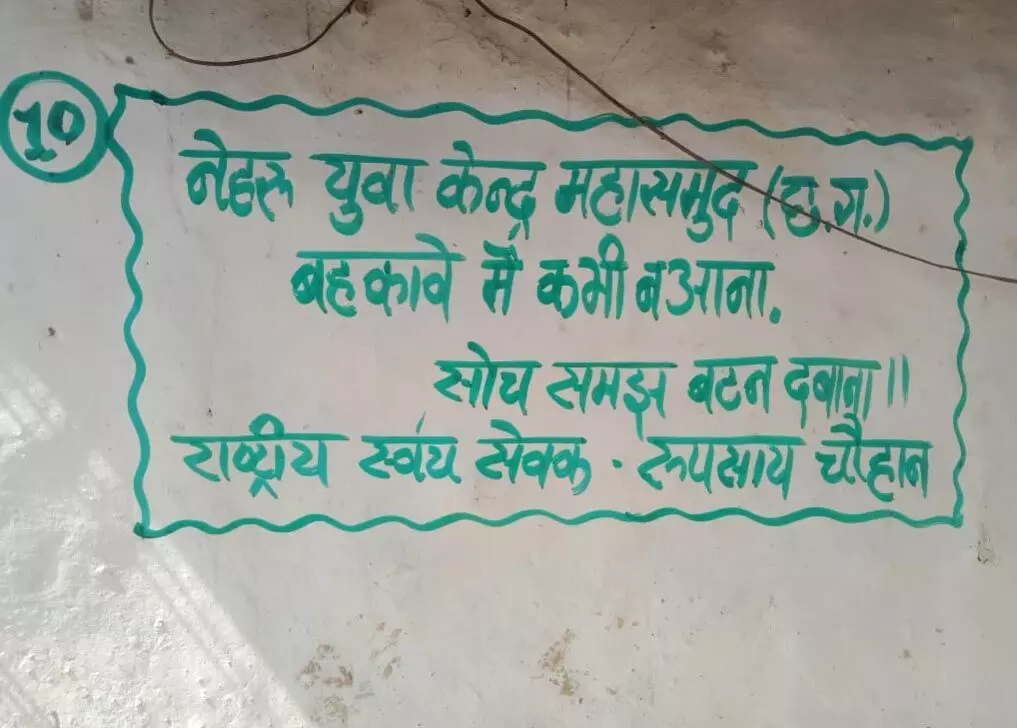 10
नेहरू युवा केन्द्र महासमुद (छ.ग.)
बहकावे मै कभी न आना.
सोच समझ बटन दबाना॥
राष्ट्रीय स्वंय सेवक · रुपसाय चौहान